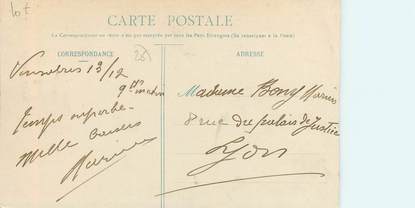 CARTE POSTALE
La Correspondance au recto n'est pas acceptée par tous les Pays Etrangers (Se renseigner à la Poste)
CORRESPONDANCE
ADRESSE
13/12
9h matin
Temps superbe
Mille baisers
Madame Bony
8 rue du palais de Justice
Lyon